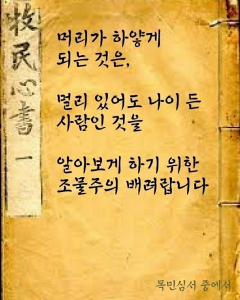 牧民心書 一
머리가 하얗게
되는 것은,
멀리 있어도 나이 든
사람인 것을
알아보게 하기 위한
조물주의 배려랍니다
목민심서 중에서